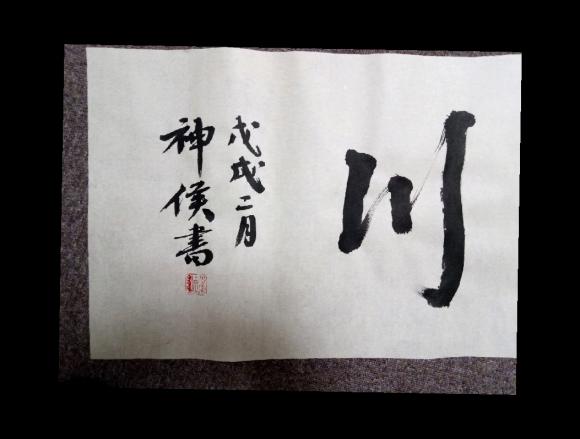 川
戊戌二月
神侯書